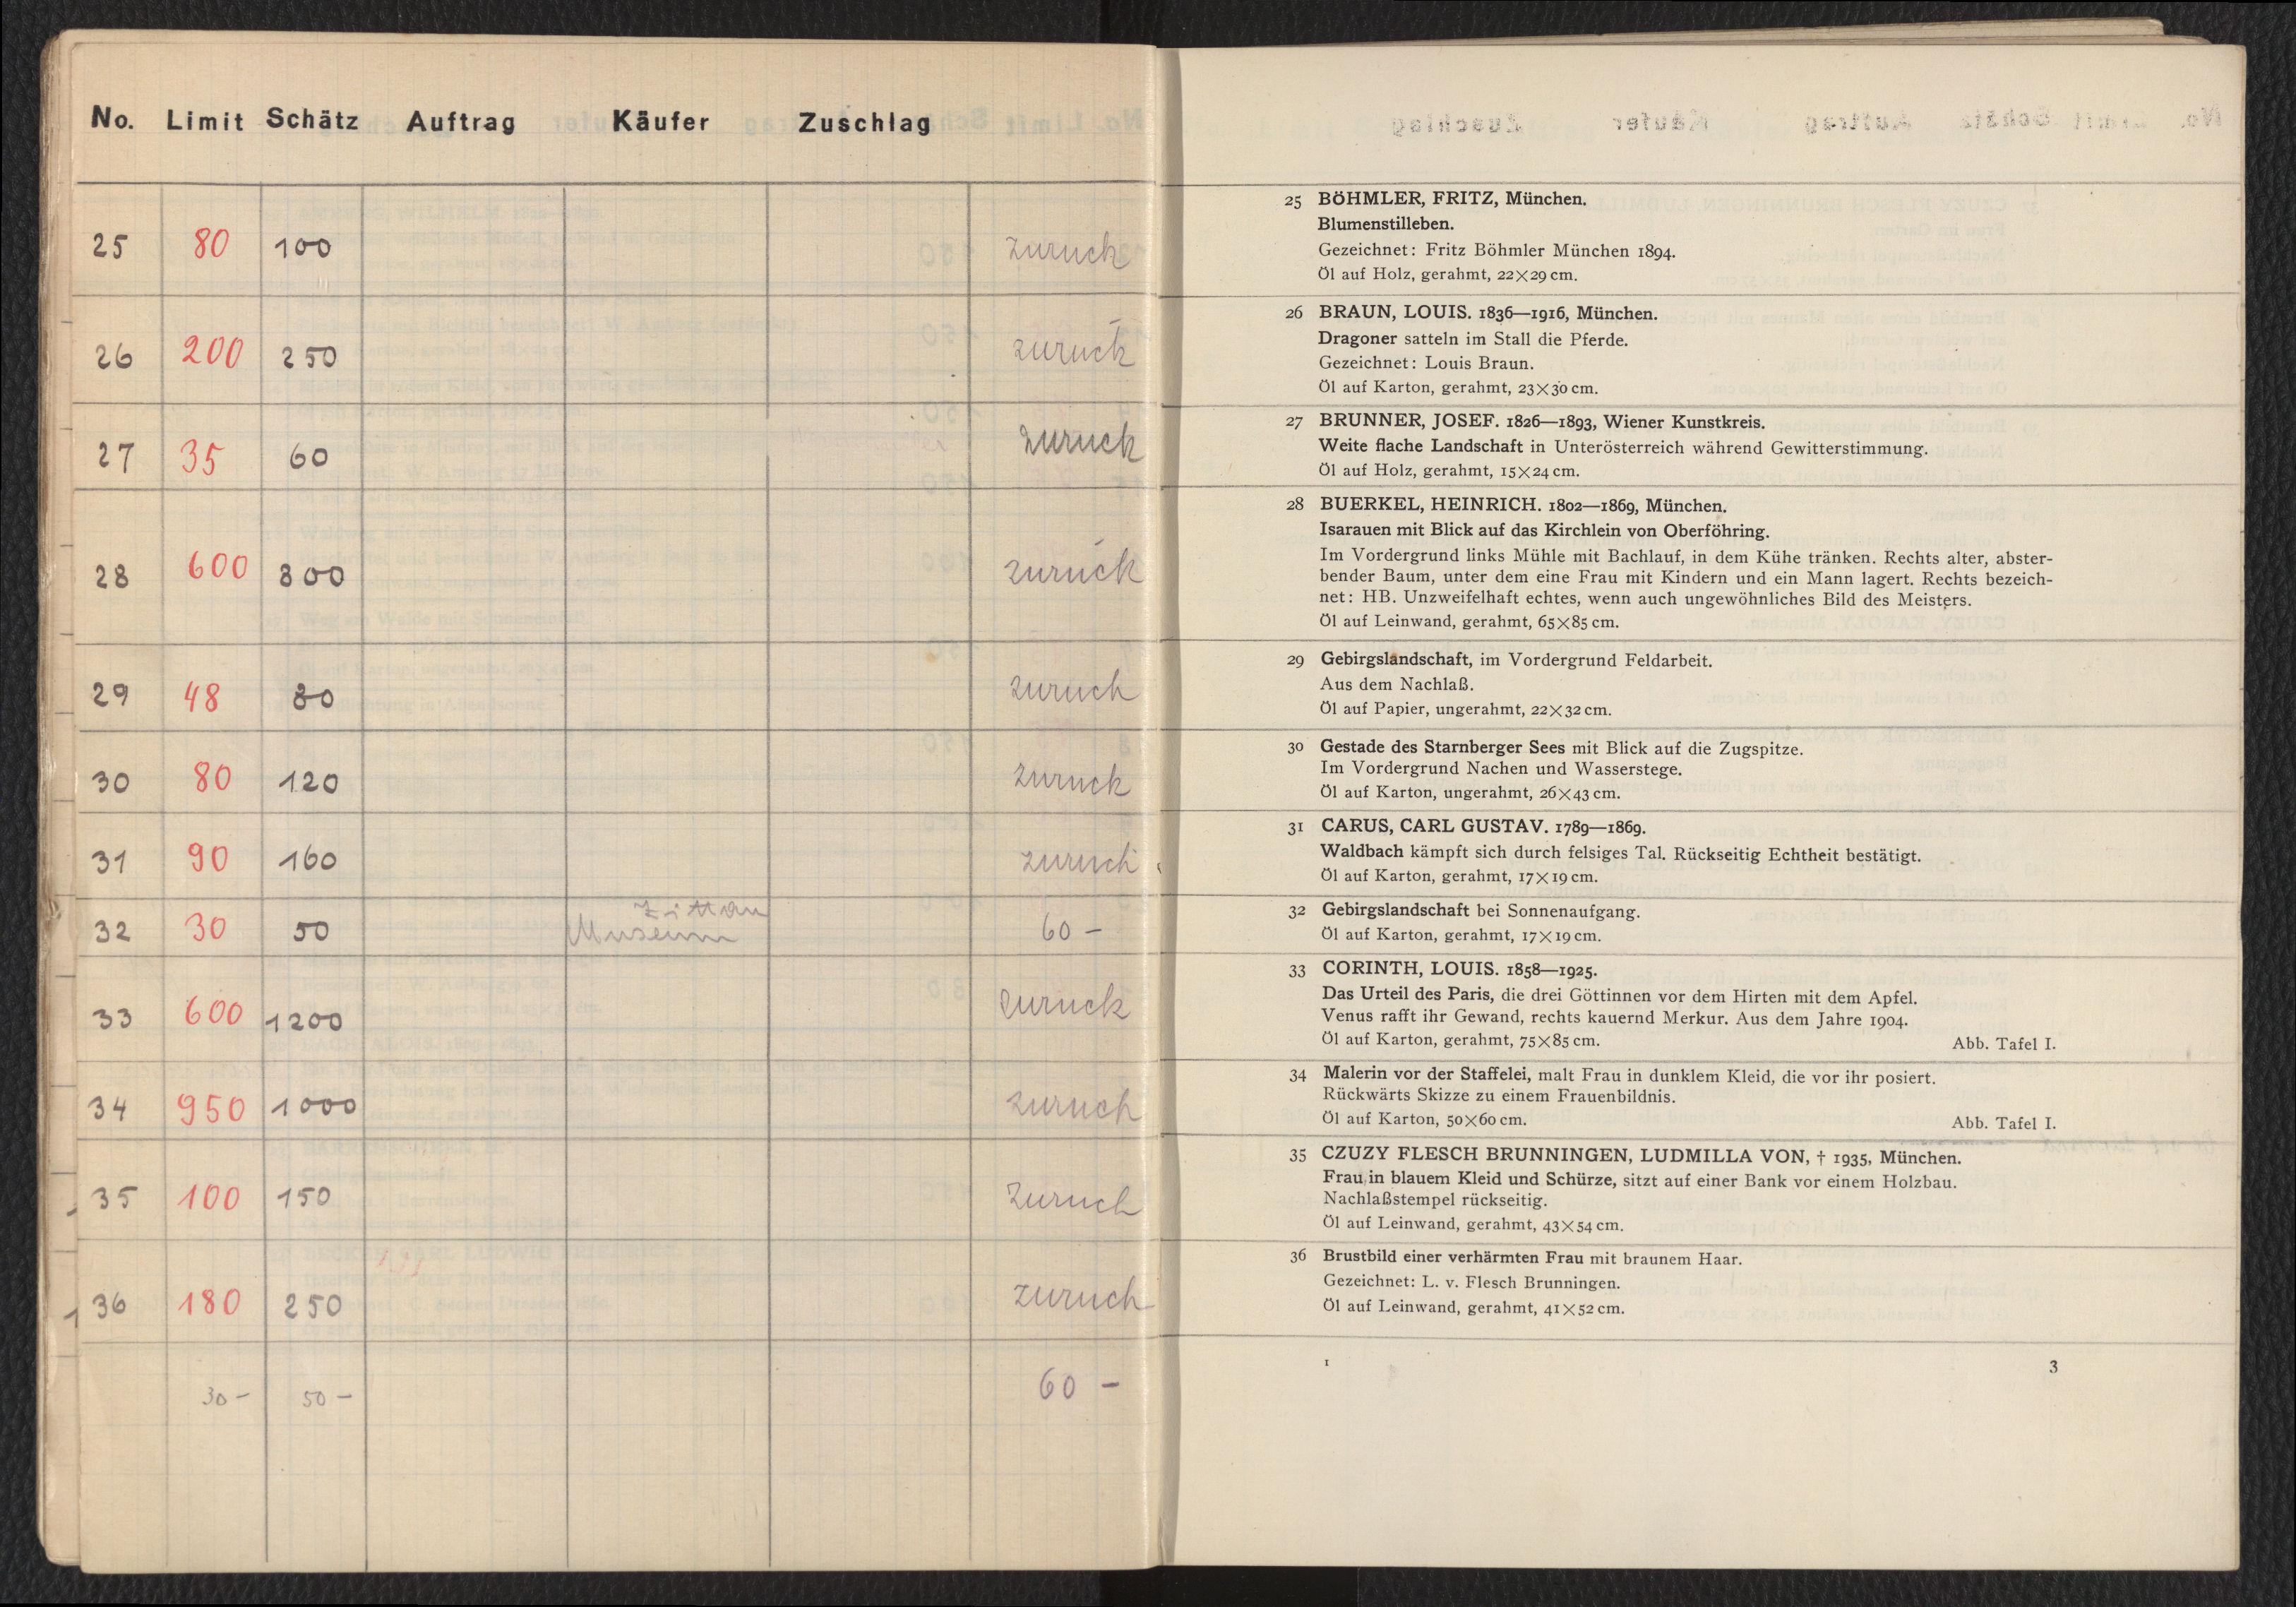 No. Limit Schätz Auftrag Käufer Zuschlag
25 80 100 zurück
26 200 250 zurück
27 35 60 zurück
28 600 800 zurück
29 48 80 zurück
30 80 120 zurück
31 90 160 zurück
Zittau
32 30 50 Museum 60 –
33 600 1200 zurück
34 950 1000 zurück
35 100 150 zurück
36 180 250 zurück
30 – 50 – 60 –
25 BÖHMLER, FRITZ, München.
Blumenstilleben.
Gezeichnet: Fritz Böhmler München 1894.
Öl auf Holz, gerahmt, 22×29 cm.
26 BRAUN, LOUIS. 1836—1916, München.
Dragoner satteln im Stall die Pferde.
Gezeichnet: Louis Braun.
Öl auf Karton, gerahmt, 23×30 cm.
27 BRUNNER, JOSEF. 1826—1893, Wiener Kunstkreis.
Weite flache Landschaft in Unterösterreich während Gewitterstimmung.
Öl auf Holz, gerahmt, 15×24 cm.
28 BUERKEL, HEINRICH. 1802—1869, München.
Isarauen mit Blick auf das Kirchlein von Oberföhring.
Im Vordergrund links Mühle mit Bachlauf, in dem Kühe tränken. Rechts alter, abster-
bender Baum, unter dem eine Frau mit Kindern und ein Mann lagert. Rechts bezeich-
net: HB. Unzweifelhaft echtes, wenn auch ungewöhnliches Bild des Meisters.
Öl auf Leinwand, gerahmt, 65×85 cm.
29 Gebirgslandschaft, im Vordergrund Feldarbeit.
Aus dem Nachlaß.
Öl auf Papier, ungerahmt, 22×32 cm.
30 Gestade des Starnberger Sees mit Blick auf die Zugspitze.
Im Vordergrund Nachen und Wasserstege.
Öl auf Karton, ungerahmt, 26×43 cm.
31 CARUS, CARL GUSTAV. 1789—1869.
Waldbach kämpft sich durch felsiges Tal. Rückseitig Echtheit bestätigt.
Öl auf Karton, gerahmt, 17×19 cm.
32 Gebirgslandschaft bei Sonnenaufgang.
Öl auf Karton, gerahmt, 17×19 cm.
33 CORINTH, LOUIS. 1858—1925.
Das Urteil des Paris, die drei Göttinnen vor dem Hirten mit dem Apfel.
Venus rafft ihr Gewand, rechts kauernd Merkur. Aus dem Jahre 1904.
Öl auf Karton, gerahmt, 75×85 cm. Abb. Tafel I.
34 Malerin vor der Staffelei, malt Frau in dunklem Kleid, die vor ihr posiert.
Rückwärts Skizze zu einem Frauenbildnis.
Öl auf Karton, 50×60 cm. Abb. Tafel I.
35 CZUZY FLESCH BRUNNINGEN, LUDMILLA VON, † 1935, München.
Frau in blauem Kleid und Schürze, sitzt auf einer Bank vor einem Holzbau.
Nachlaßstempel rückseitig.
Öl auf Leinwand, gerahmt, 43×54 cm.
36 Brustbild einer verhärmten Frau mit braunem Haar.
Gezeichnet: L. v. Flesch Brunningen.
Öl auf Leinwand, gerahmt, 41×52 cm.
1 3